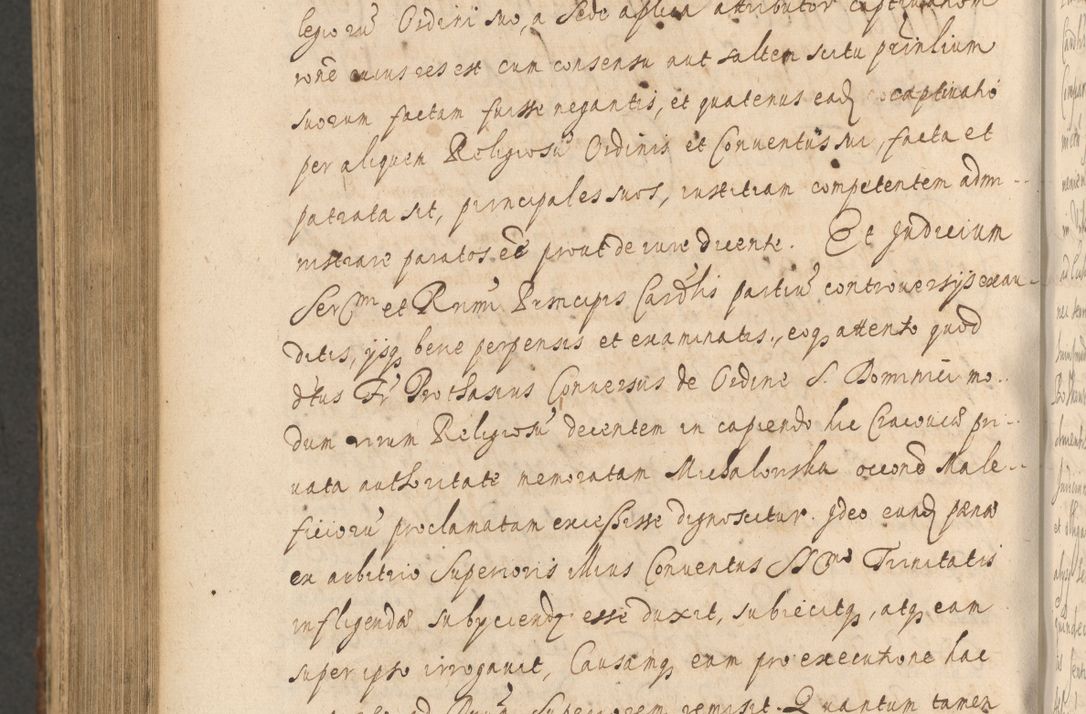 legiorũ Ordini suo, a Sede aplica attributor captivationem
rone cuius res est cum consensu aut saltem scitu prinlium
suorum factam fuisse negantis, et quatenus eadȝ captivatio
per aliquem Religiosũ Ordinis et Conventus sui, facta et
patrata sit, principales suos, iustitiam competentem admi-
nistrare paratos eẽ prout de iure decente. Et Judicium
Serᵐ et Rmi Principis Cardlis partiũ controversijs exau-
ditis, ijsq bene perpensis et examinatis, eoq attento quod
dtus Fr Prothasius Conversus de Ordine S. Dominici mo-
dum virum Religiosũ decentem in capiendo hic Cracoviæ pri-
vata authoritate memoratam Michalowska occone Male-
ficiorũ proclamatam excessisse dignoscitur. Ideo eundȝ pænæ
ex arbitrio Superioris illius Conventus SSmæ Trinitatis
infligendæ subyciendȝ esse duxit, subiecitq, atq eam
super ipso irrogavit, Causamq eum pro executione hac
Superiorem remisit. Quantum tamen